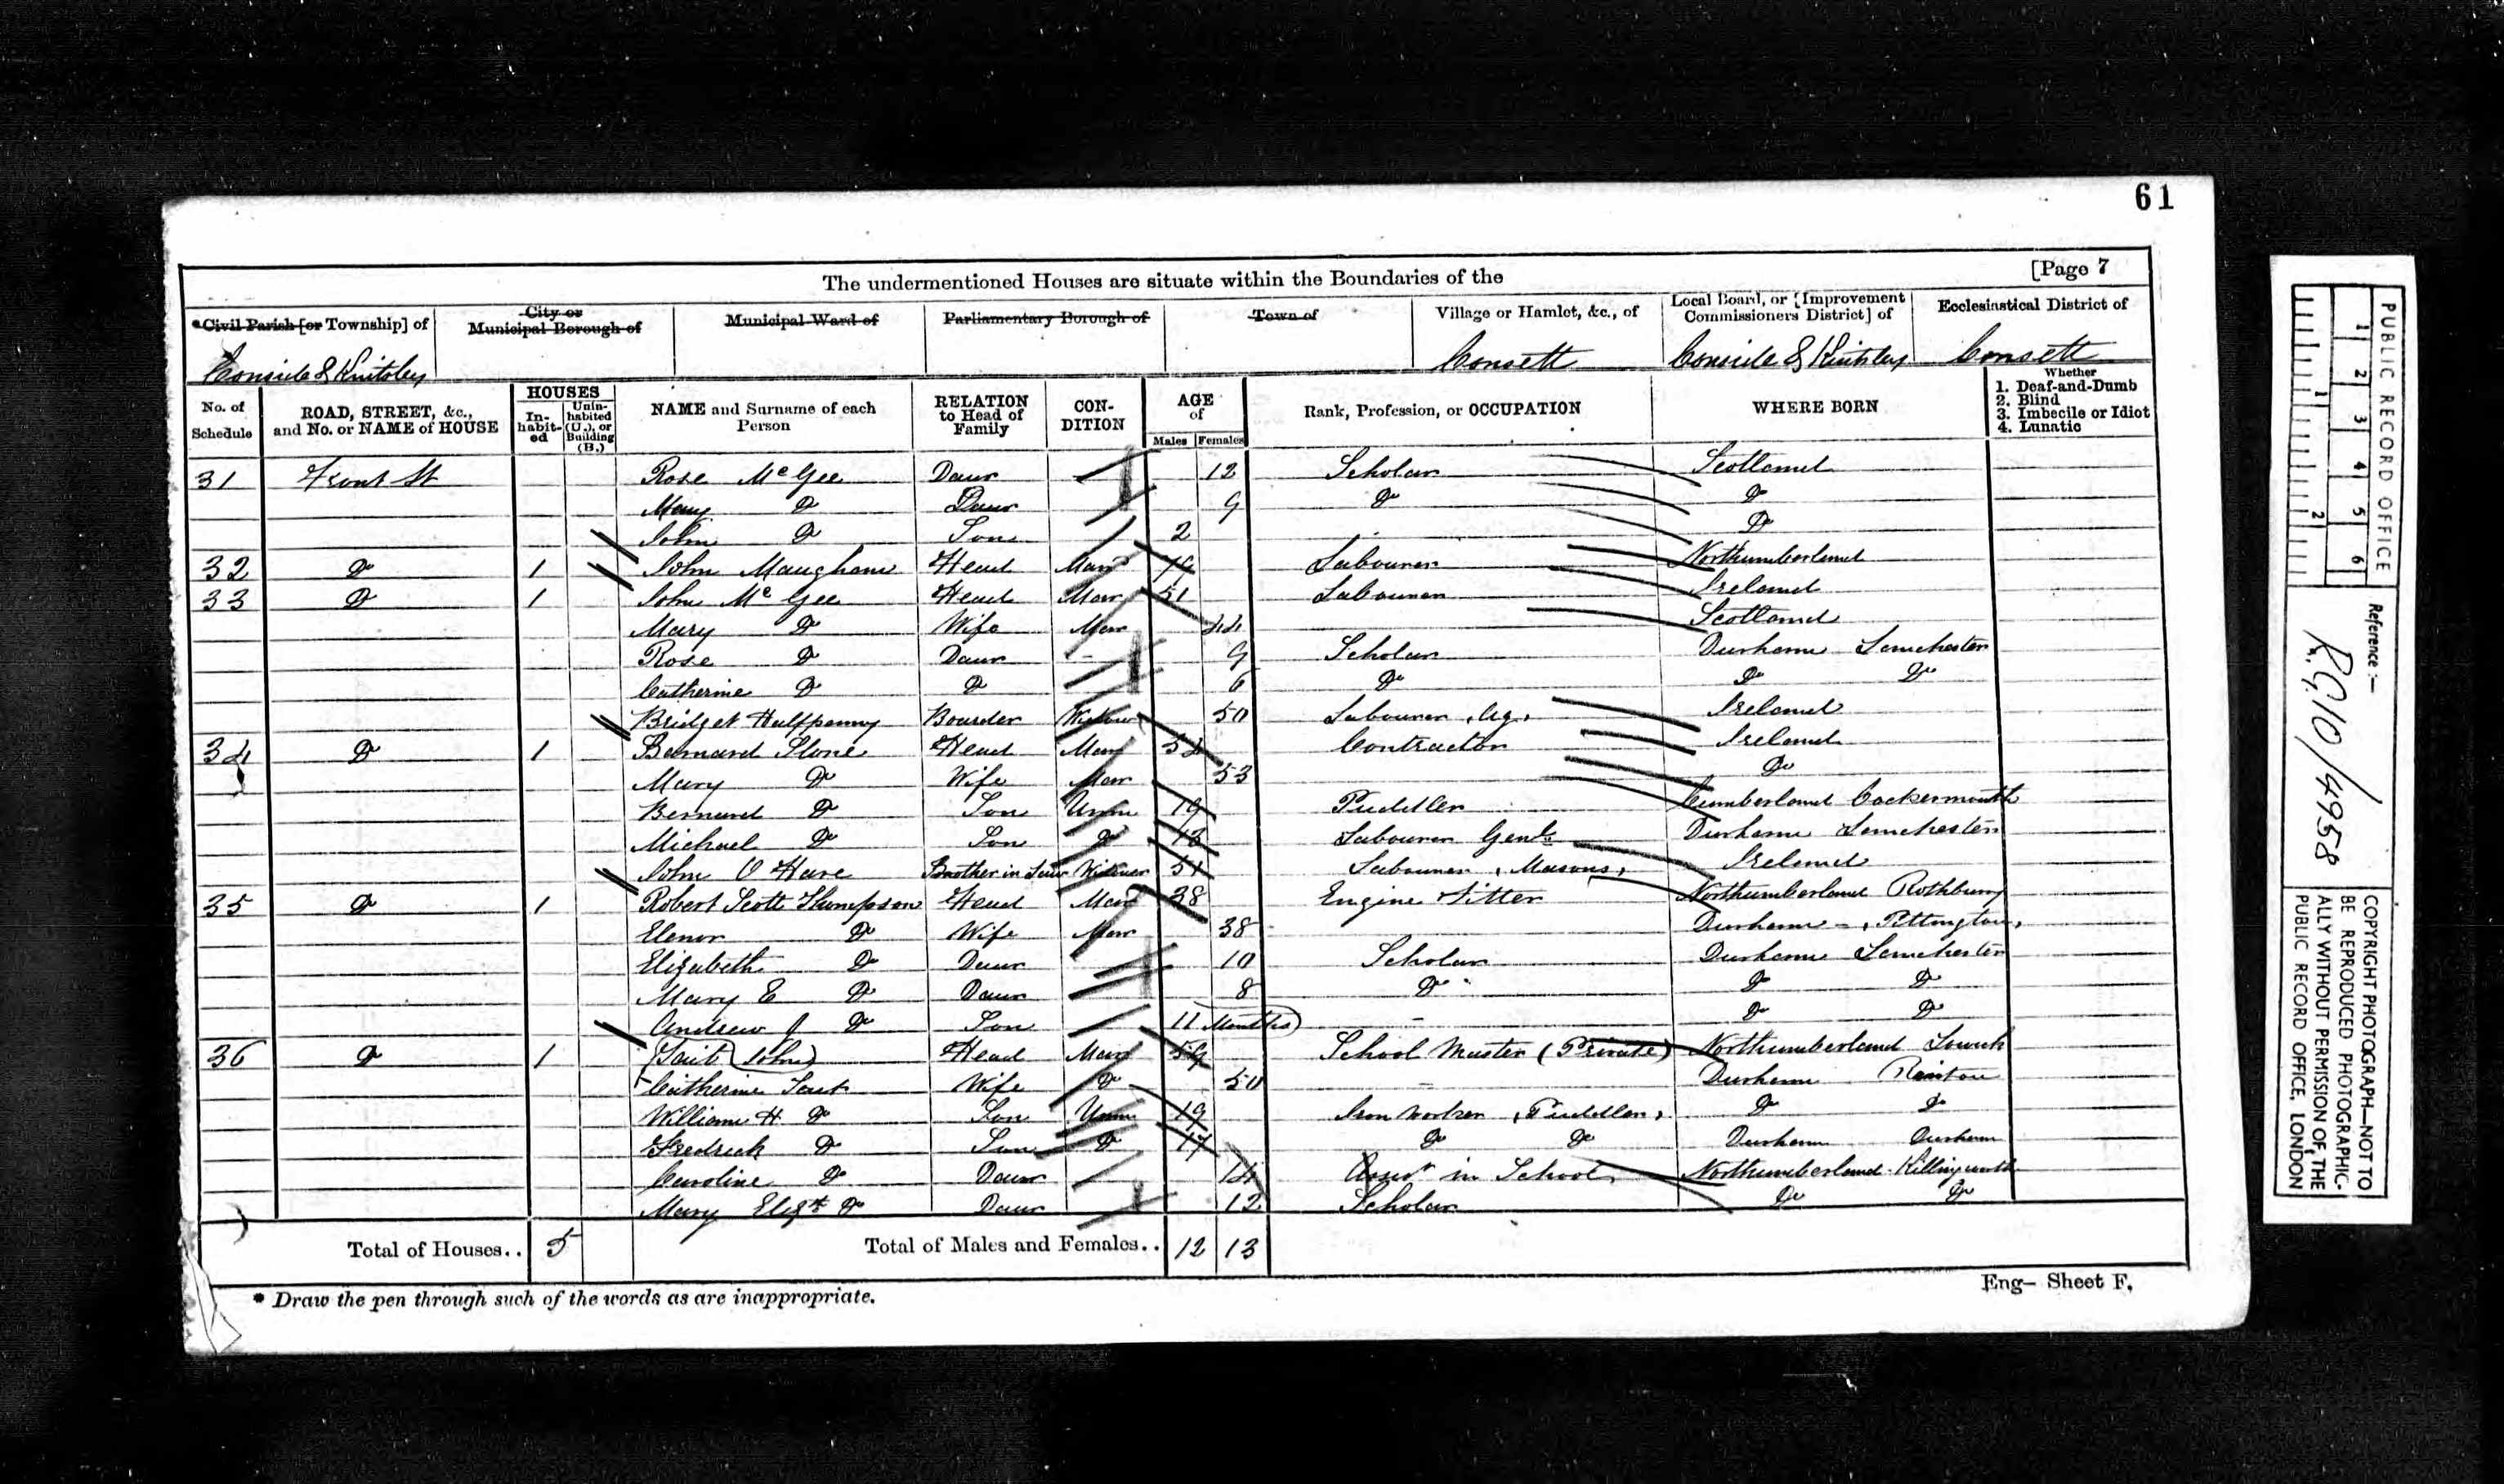 61
The undermentioned Houses are situate within the Boundaries of the [Page 7
*Civil Parish [or Township] of City or Municipal Borough of Municipal Ward of Parliamentary Borough of Town of Village or Hamlet, &c., of Local Board, or [Improvement Commissioners District] of Ecclesiastical District of
Conside & Knitsley Consett Conside & Knitsley Consett
No. of Schedule ROAD, STREET, &c., and No. or NAME of HOUSE HOUSES In-habit-ed Unin-habited (U.), or Building (B.) NAME and Surname of each Person RELATION to Head of Family CON-DITION AGE of Males Females Rank, Profession, or OCCUPATION WHERE BORN Whether 1. Deaf-and-Dumb 2. Blind 3. Imbecile or Idiot 4. Lunatic
31 Front St Rose Mc Gee Daur 12 Scholar Scotland
Mary Do Daur 9 Do Do
John Do Son 2 Do
32 Do 1 John Maughan Head Mar Labourer Northumberland
33 Do 1 John Mc Gee Head Mar 51 Labourer Ireland
Mary Do Wife Mar 44 Scotland
Rose Do Daur 9 Scholar Durham Lanchester
Catherine Do Do 6 Do Do Do
Bridget Halfpenny Boarder Widow 50 Labourer (Ag) Ireland
34 Do 1 Bernard Slone Head Mar Contractor Ireland
Mary Do Wife Mar 53 Do
Bernard Do Son Unm 19 Puddler Cumberland Cockermouth
Michael Do Son Do 13 Labourer Genl Durham Lanchester
John O Hare Brother in Law Widower 51 Labourer (Masons) Ireland
35 Do 1 Robert Scott Thompson Head Mar 38 Engine Fitter Northumberland Rothbury
Elenor Do Wife Mar 38 Durham - (Pittington)
Elizabeth Do Daur 10 Scholar Durham Lanchester
Mary E Do Daur 8 Do Do Do
Andrew J Do Son 11 Months - Do Do
36 Do 1 Tait (John) Head Mar 59 School Master (Private) Northumberland Lowick
Catherine Tait Wife Do 50 - Durham Rainton
William H Do Son Unm 19 Iron worker (Puddler) Do Do
Fredrick Do Son Do 17 Do Do Durham Durham
Caroline Do Daur 14 Assist in School Northumberland Killingworth
Mary Elizth Do Daur 12 Scholar Do Do
Total of Houses.. 5 Total of Males and Females.. 12 13
* Draw the pen through such of the words as are inappropriate.
Eng- Sheet F.
PUBLIC RECORD OFFICE
1 2 3 4 5 6
1 2
Reference:-
R.G.10/4958
COPYRIGHT PHOTOGRAPH—NOT TO
BE REPRODUCED PHOTOGRAPHIC-
ALLY WITHOUT PERMISSION OF THE
PUBLIC RECORD OFFICE, LONDON